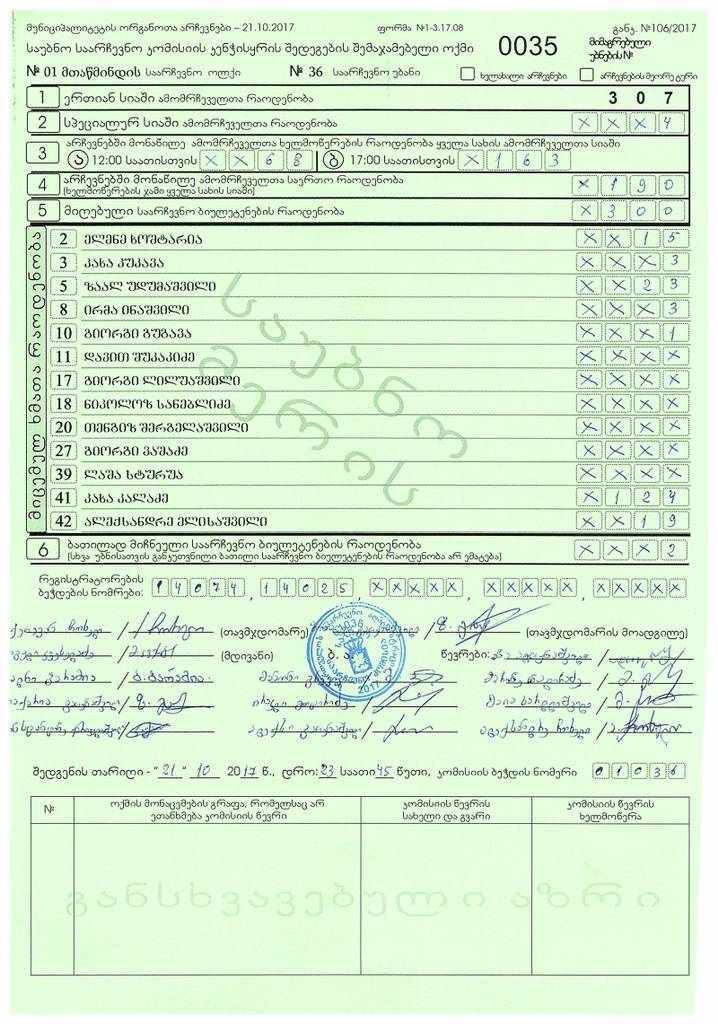 მუნიციპალიტეტის ორგანოთა არჩევნები – 21.10.2017 ფორმა №1-3.17.08 განკ. №106/2017
საუბნო საარჩევნო კომისიის კენჭისყრის შედეგების შემაჯამებელი ოქმი 0035 მიმაგრებული უბნების №
№ 01 მთაწმინდის საარჩევნო ოლქი № 36 საარჩევნო უბანი ხელახალი არჩევნები არჩევნების მეორე ტური
1 ერთიან სიაში ამომრჩეველთა რაოდენობა 307
2 სპეციალურ სიაში ამომრჩეველთა რაოდენობა X X X 4
3 არჩევნებში მონაწილე ამომრჩეველთა ხელმოწერების რაოდენობა ყველა სახის ამომრჩეველთა სიაში
ა 12:00 საათისთვის X X 6 8 ბ 17:00 საათისთვის X 1 6 3
4 არჩევნებში მონაწილე ამომრჩეველთა საერთო რაოდენობა X 1 9 0
(ხელმოწერების ჯამი ყველა სახის სიაში)
5 მიღებული საარჩევნო ბიულეტენების რაოდენობა X 3 0 0
მიცემულ ხმათა რაოდენობა
2 ელენე ხოშტარია X X 1 5
3 კახა კუკავა X X X 3
5 ზაალ უდუმაშვილი X X 2 3
8 ირმა ინაშვილი X X X 3
10 გიორგი გუგავა X X X 1
11 დავით შუკაკიძე X X X X
17 გიორგი ლილუაშვილი X X X X
18 ნიკოლოზ სანებლიძე X X X X
20 თენგიზ შერგელაშვილი X X X X
27 გიორგი ვაშაძე X X X X
39 ლაშა სტურუა X X X X
41 კახა კალაძე X 1 2 4
42 ალექსანდრე ელისაშვილი X X 1 9
საუბნო
მერის
6 ბათილად მიჩნეული საარჩევნო ბიულეტენების რაოდენობა X X X 2
(სხვა უბნისათვის განკუთვნილი ბათილი საარჩევნო ბიულეტენების რაოდენობა არ ემატება)
რეგისტრატორების
ბეჭდების ნომრები: 14074, 14025, XXXXX, XXXXX, XXXXX
(თავმჯდომარე) (თავმჯდომარის მოადგილე)
(მდივანი) ბ. ა. წევრები:
2017
შედგენის თარიღი - "21" 10 2017 წ., დრო: 23 საათი 45 წუთი, კომისიის ბეჭდის ნომერი 01036
№ ოქმის მონაცემების გრაფა, რომელსაც არ ეთანხმება კომისიის წევრი კომისიის წევრის სახელი და გვარი კომისიის წევრის ხელმოწერა
განსხვავებული აზრი